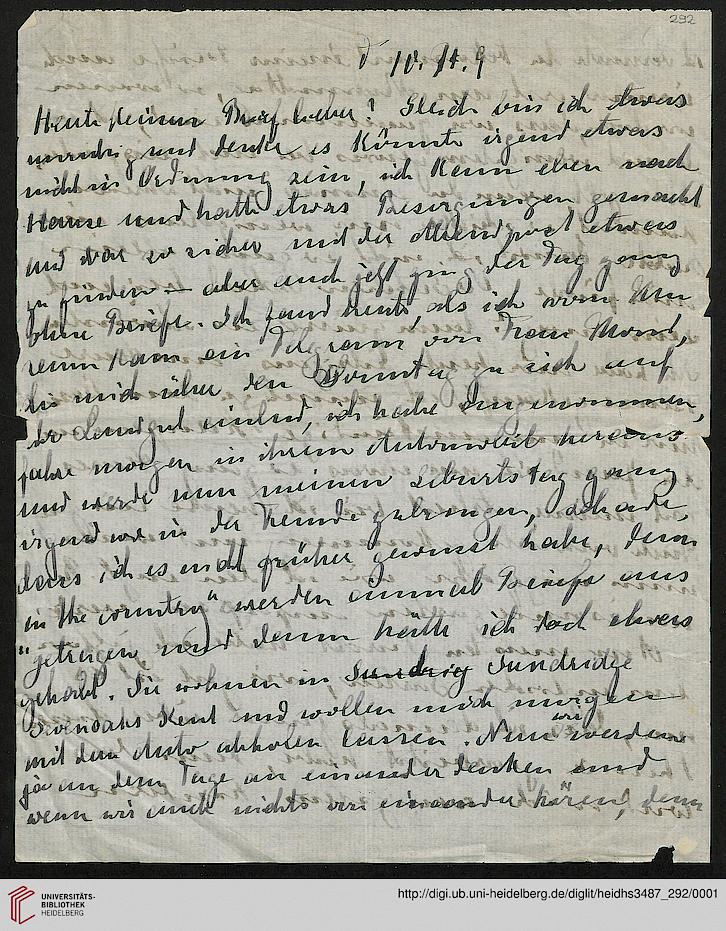 292
10. 11. 9
Heute keinen Brief lieber! Gleich bin ich etwas
unruhig und denke es könnte irgend etwas
nicht in Ordnung sein, ich kam eben nach
Hause und hatte etwas Besorgungen gemacht
und war so sicher mit der Abendpost etwas
zu finden – aber auch jetzt ging der Tag ganz
ohne Briefe. Ich fand heute, als ich vom
kam ein Telegramm von Frau Mond,
die mich über den Sonntag zu sich auf
ihr Landgut einlud, ich habe angenommen,
fahre morgen in ihrem Automobil heraus
und werde nun meinen Geburtstag ganz
irgend wo in der Fremde zubringen, schade,
dass ich es nicht früher gewusst habe, denn
in the country" werden einmal Briefe aus
"getragen und dann hätte ich doch etwas
gehabt. Sie wohnen in Sundridge
Sevenoaks Kent und wollen mich morgen
mit dem Auto abholen lassen. Nun wir werden
ja an dem Tage an einander denken und
wenn wir auch nichts von einander hören, denn
UNIVERSITÄTS-
BIBLIOTHEK
HEIDELBERG
http://digi.ub.uni-heidelberg.de/diglit/heidhs3487_292/0001